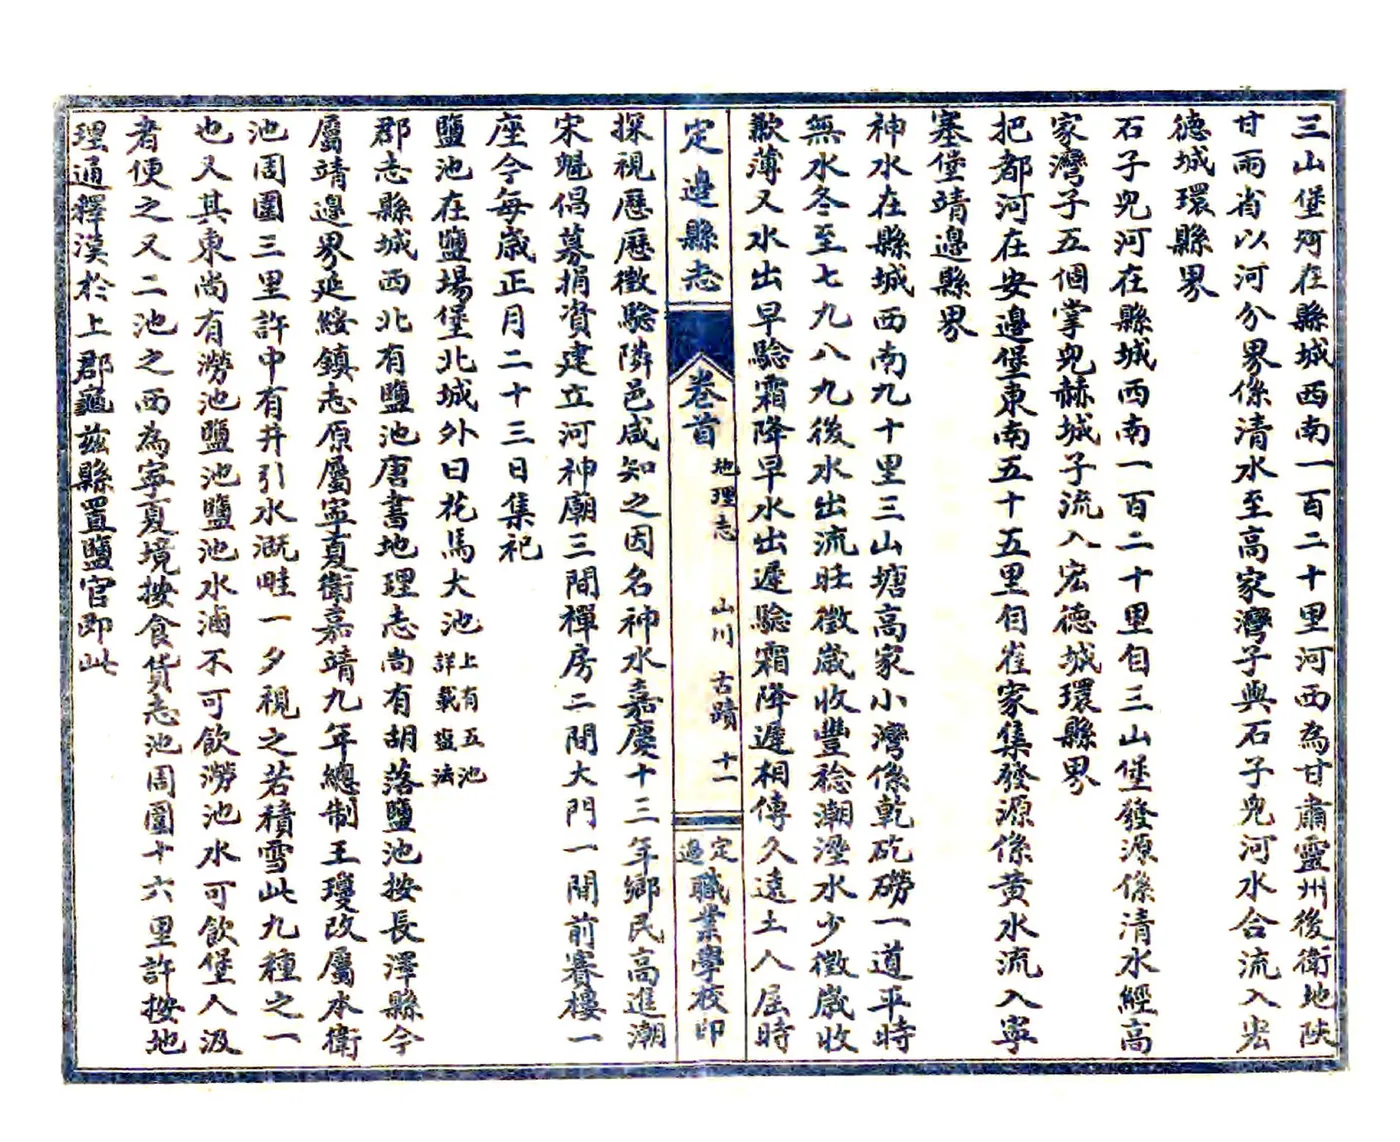 三山堡河在縣城西南一百二十里河西為甘肅靈州後衛地陝
甘兩省以河分界係清水至高家灣子與石子兒河水合流入宏
德城環縣界
石子兒河在縣城西南一百二十里自三山堡發源係清水經高
家灣子五個掌兒赫城子流入宏德城環縣界
把都河在安邊堡東南五十五里自崔家集發源係黄水流入寧
塞堡靖邊縣界
神水在縣城西南九十里三山塘高家小灣係乾矻磱一道平時
無水冬至七九八九後水出流旺徵歲收豐稔潮溼水少徵歲收
歉薄又水出早驗霜降早水出遲驗霜降遲相傳久遠土人屆時
定邊縣志
卷首
地理志 山川 古蹟 十一
定邊職業學校印
探視歷歷徵驗隣邑咸知之因名神水嘉慶十三年鄉民高進潮
宋魁倡募捐資建立河神廟三間禪房二間大門一間前賽樓一
座今每歲正月二十三日集祀
鹽池在鹽場堡北城外曰花馬大池上有五池詳載鹽法
郡志縣城西北有鹽池唐書地理志尚有胡落鹽池按長澤縣今
屬靖邊界延綏鎮志原屬寧夏衛嘉靖九年總制王瓊改屬本衛
池周圍三里許中有井引水溉畦一夕視之若積雪此九種之一
也又其東尚有澇池鹽池鹽池水滷不可飲澇池水可飲堡人汲
者便之又二池之西為寧夏境按食貨志池周圍十六里許按地
理通釋漢於上郡龜茲縣置鹽官即此